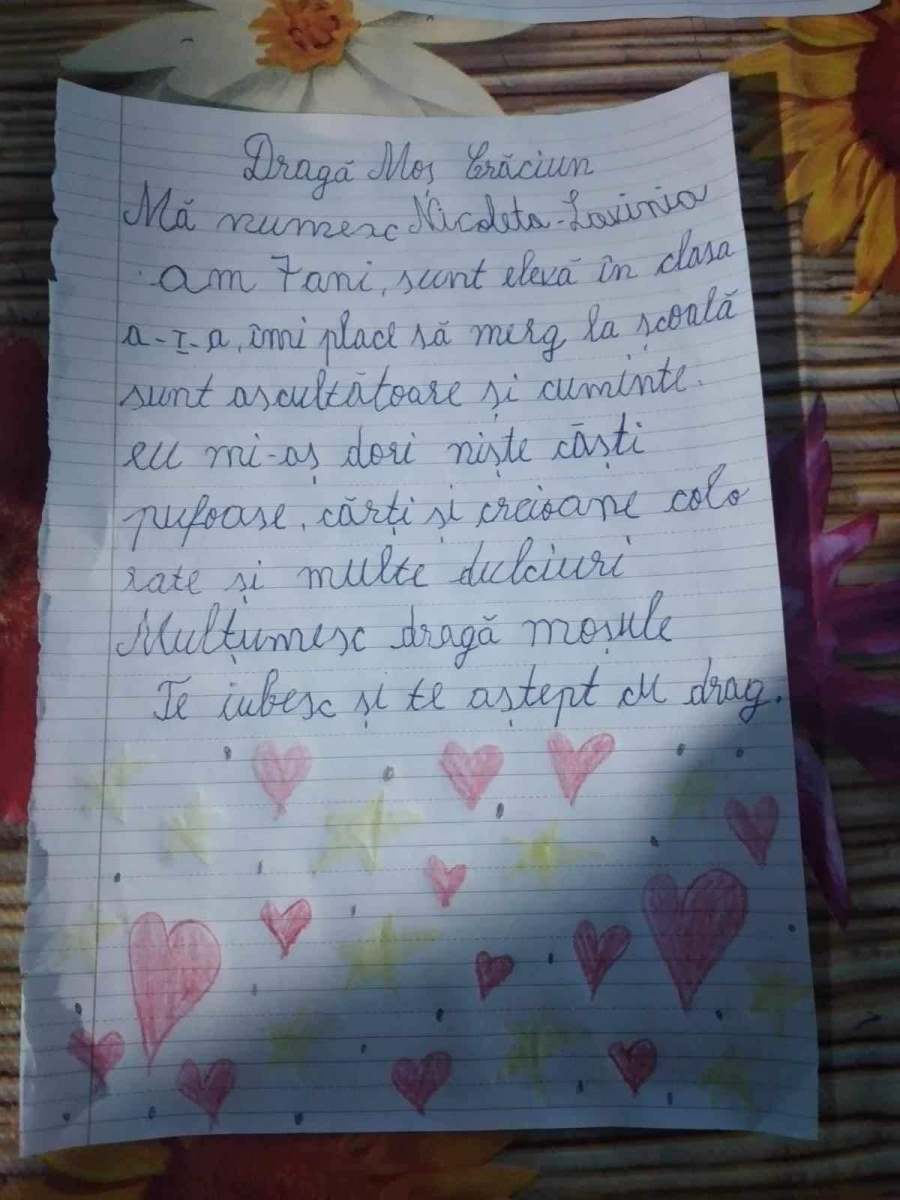 Dragă Moș Crăciun
Mă numesc Nicoleta-Lavinia
am 7 ani, sunt elevă în clasa
a-I-a, îmi place să merg la școală
sunt ascultătoare și cuminte.
eu mi-aș dori niște căști
pufoase, cărți și creioane colo
rate și multe dulciuri
Mulțumesc dragă moșule
Te iubesc și te aștept cu drag.